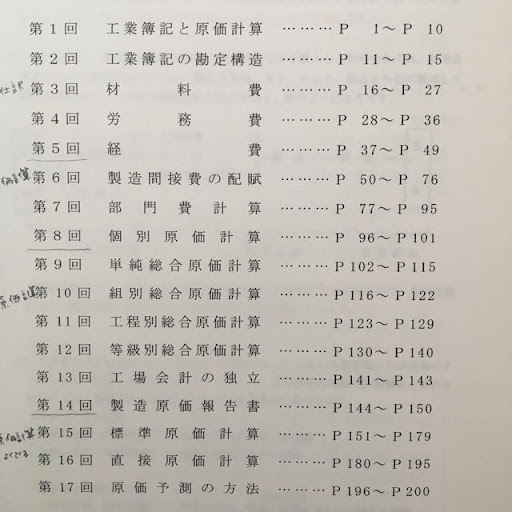 第1回 工業簿記と原価計算 ……… P 1～P 10
第2回 工業簿記の勘定構造 ……… P 11～P 15
仕訳 第3回 材料費 ……… P 16～P 27
第4回 労務費 ……… P 28～P 36
第5回 経費 ……… P 37～P 49
第6回 製造間接費の配賦 ……… P 50～P 76
第7回 部門費計算 ……… P 77～P 95
第8回 個別原価計算 ……… P 96～P 101
第9回 単純総合原価計算 ……… P 102～P 115
第10回 組別総合原価計算 ……… P 116～P 122
第11回 工程別総合原価計算 ……… P 123～P 129
第12回 等級別総合原価計算 ……… P 130～P 140
第13回 工場会計の独立 ……… P 141～P 143
第14回 製造原価報告書 ……… P 144～P 150
第15回 標準原価計算 ……… P 151～P 179
第16回 直接原価計算 ……… P 180～P 195
第17回 原価予測の方法 ……… P 196～P 200